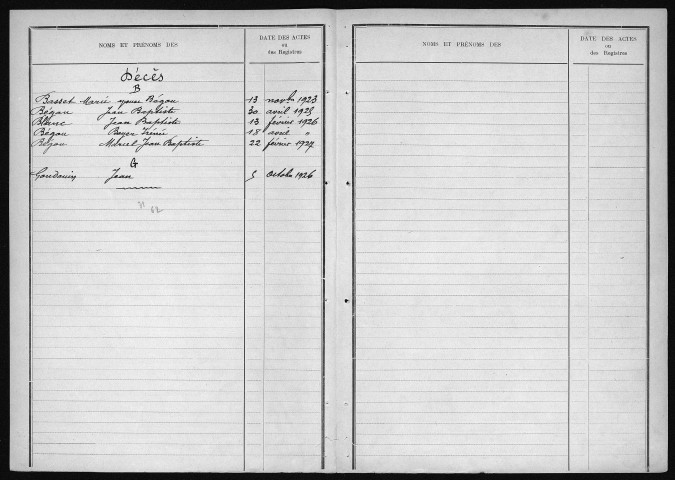 NOMS ET PRÉNOMS DES
DATE DES ACTES
ou
des Registres
Décès
B
Basset Marie épouse Bégou 13 novbre 1923
Bégou Jean Baptiste 30 avril 1925
Blanc Jean Baptiste 13 février 1926
Bégou Irénée 18 avril "
Bégou Marcel Jean Baptiste 22 février 1927
G
Jean 5 octobre 1926
NOMS ET PRÉNOMS DES
DATE DES ACTES
ou
des Registres